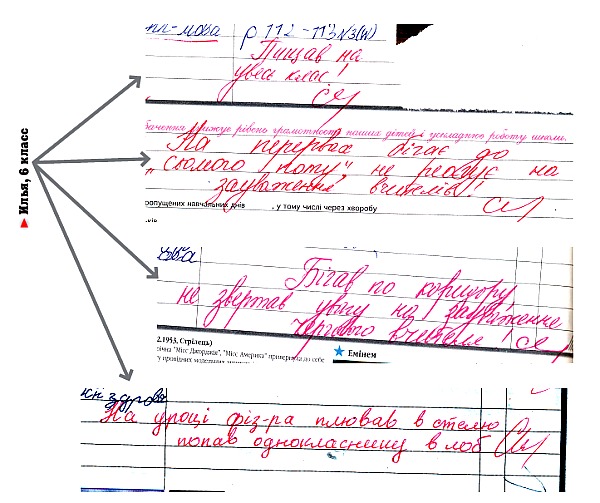 р 112-113 N3(и)
укр-мова
Пищав на
увесь клас!
бачення знижує рівень грамотності наших дітей і ускладнює роботу школи.
На перервах бігає до
„сьомого поту", не реагує на
зауваження вчителів!
ропущених навчальних днів , у тому числі через хворобу
Илья, 6 класс
Бігав по коридору,
не звертав увагу на зауваження
чергового вчителя!
2.1953, Стрілець)
річна "Місс Джорджія", "Місс Америка"
Емінем
На уроці фіз-ра плював в стелю
попав однокласнику в лоб